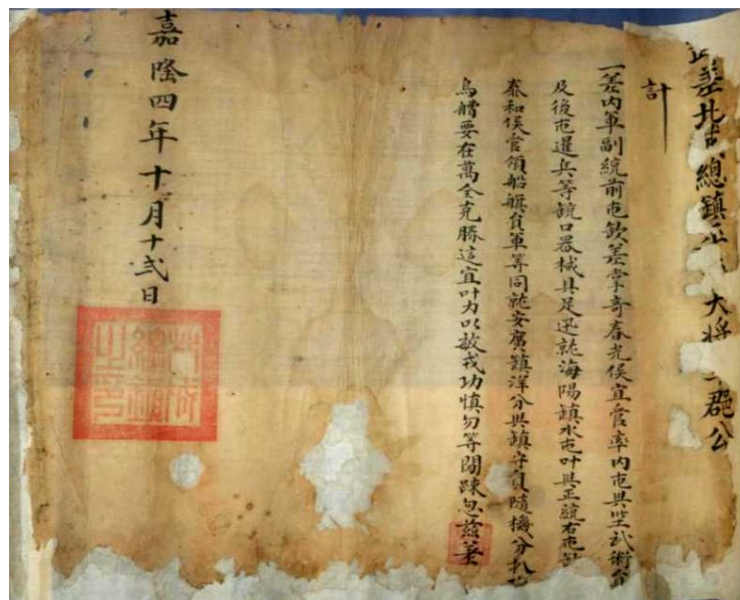 差北城總鎮 大將 郡公
計
一差內軍副統前屯欽差掌奇春光侯宜管率內屯與堅武術
及後屯暹兵等銃口器械具足迅就海陽鎮水屯叶與正統右屯
泰和侯管領船艘負軍等同就安廣鎮洋分與鎮守員隨機分扎
烏艚要在萬全克勝這宜叶力以敵戎功慎勿等閒踈忽茲差
嘉隆四年十月十弍日
總鎮之印